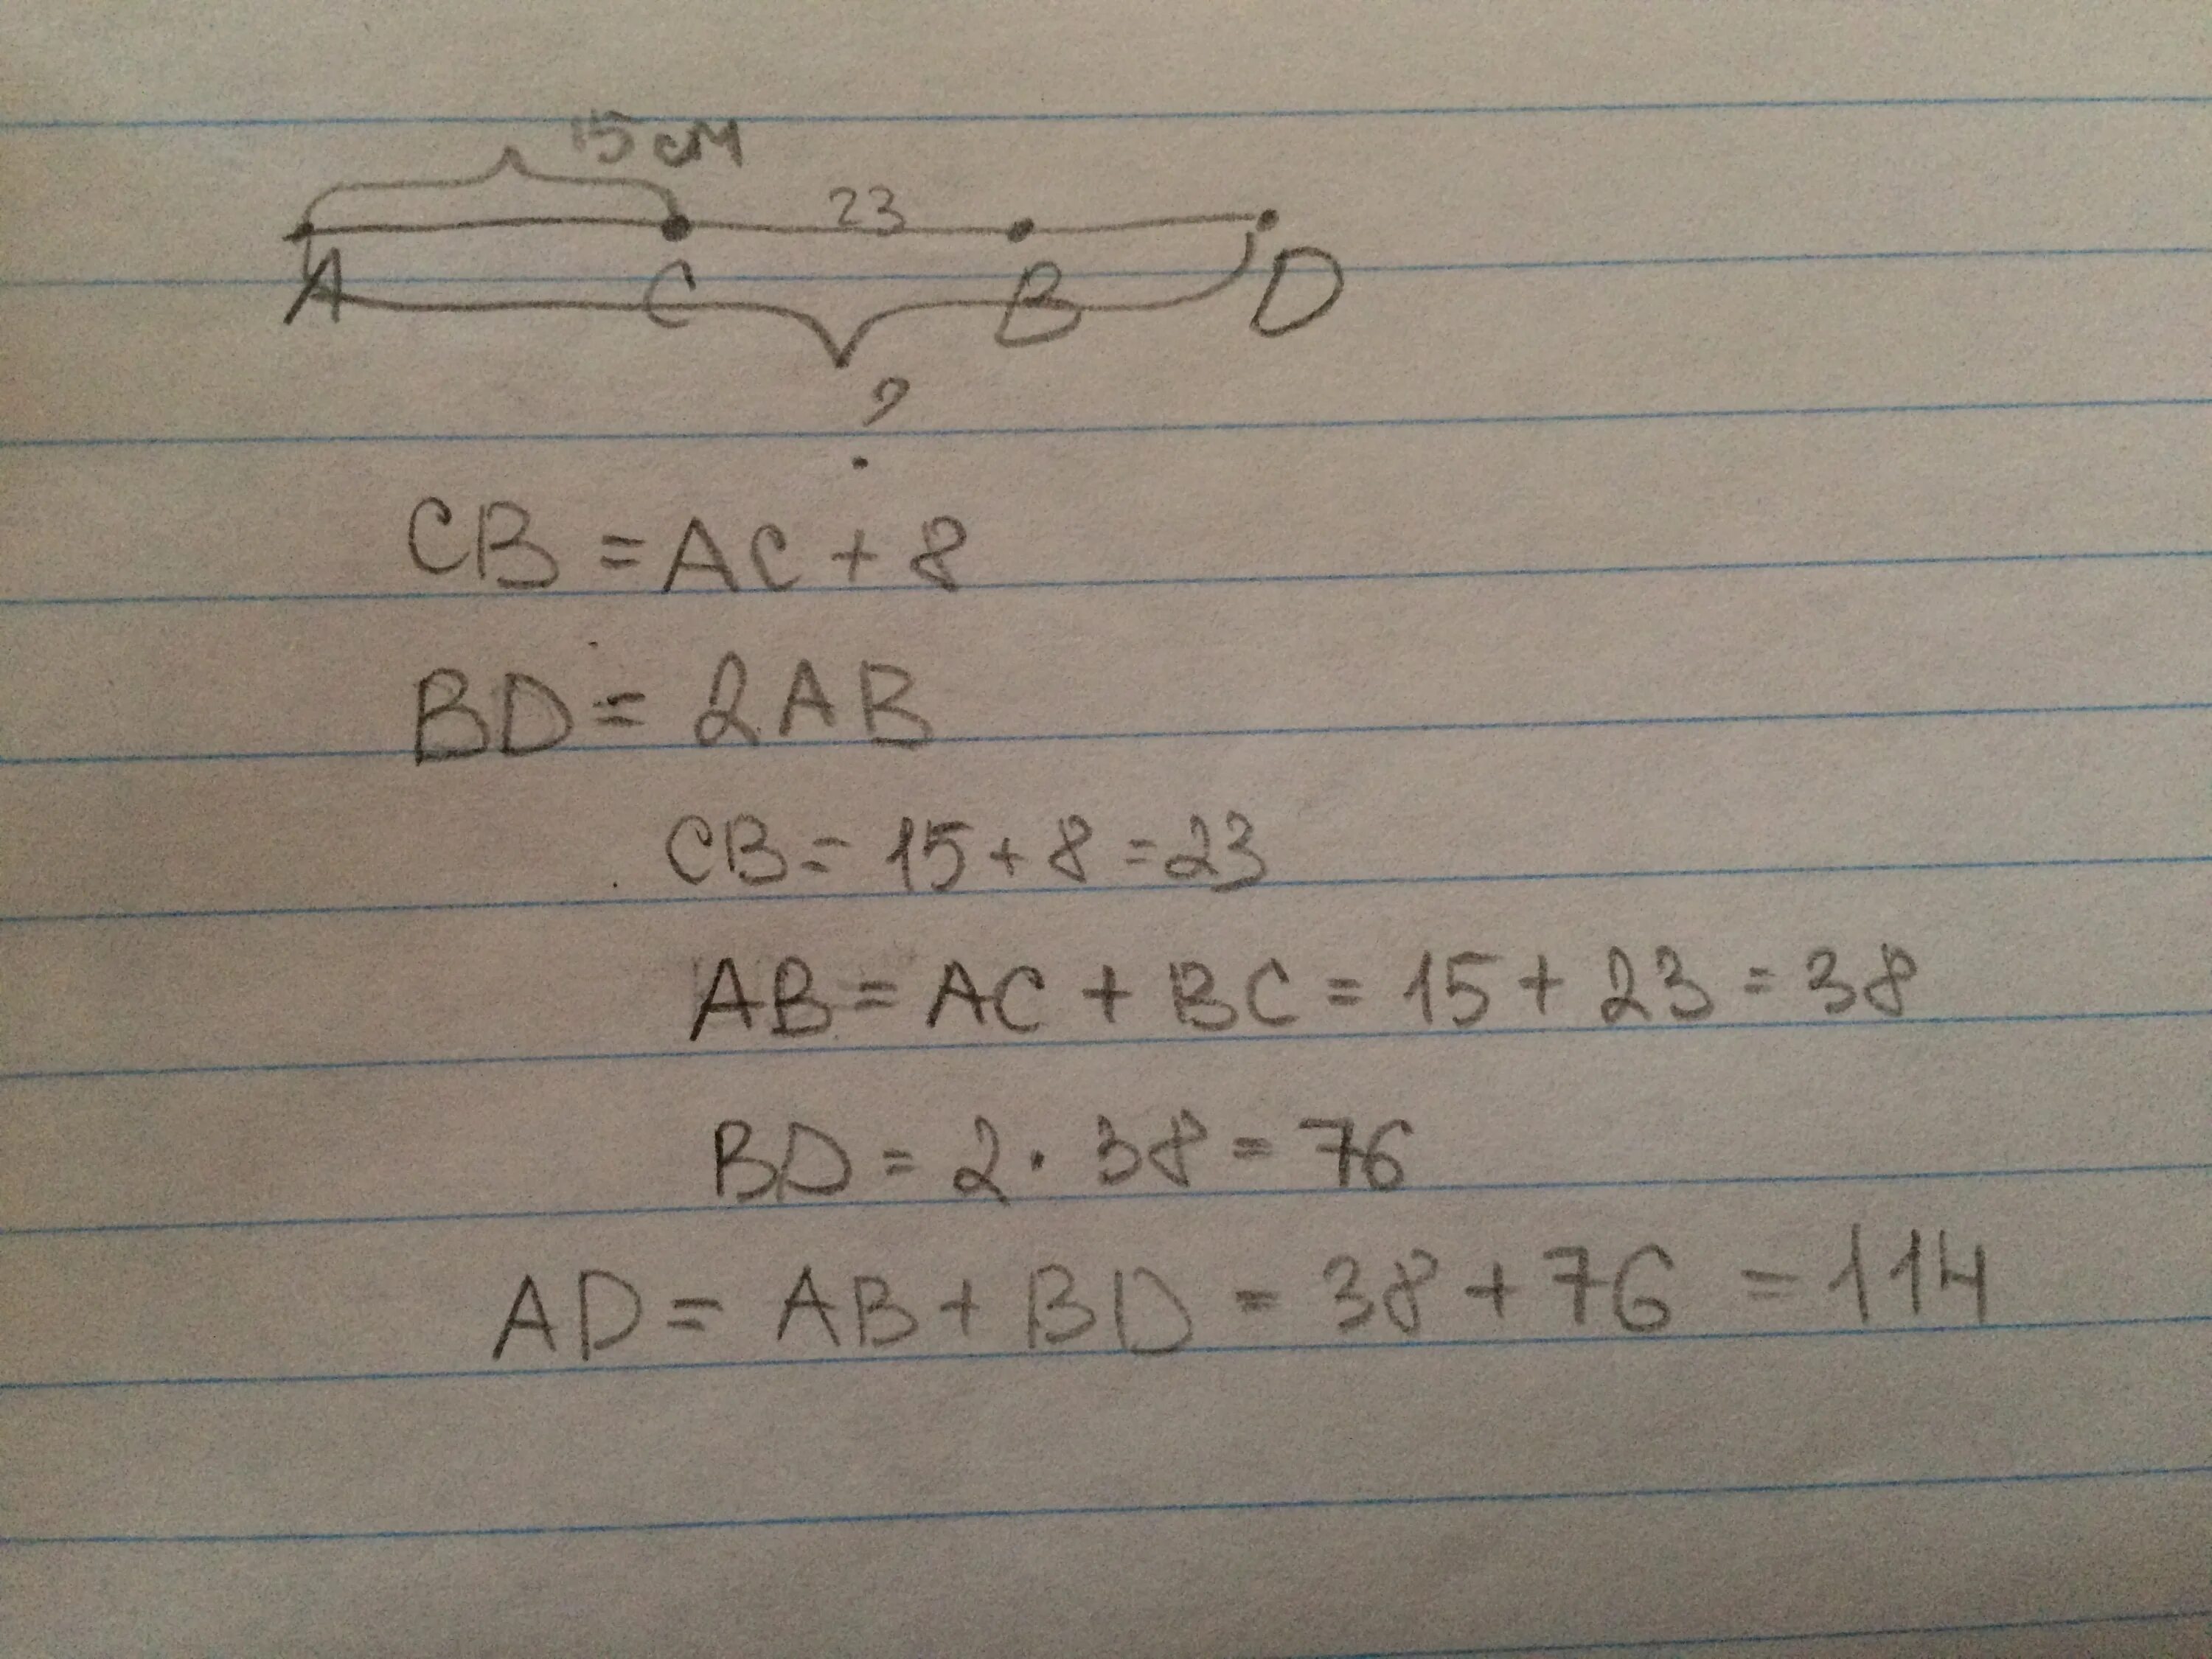 15 см
23
A C B D
?
CB = AC + 8
BD = 2AB
CB = 15 + 8 = 23
AB = AC + BC = 15 + 23 = 38
BD = 2 · 38 = 76
AD = AB + BD = 38 + 76 = 114